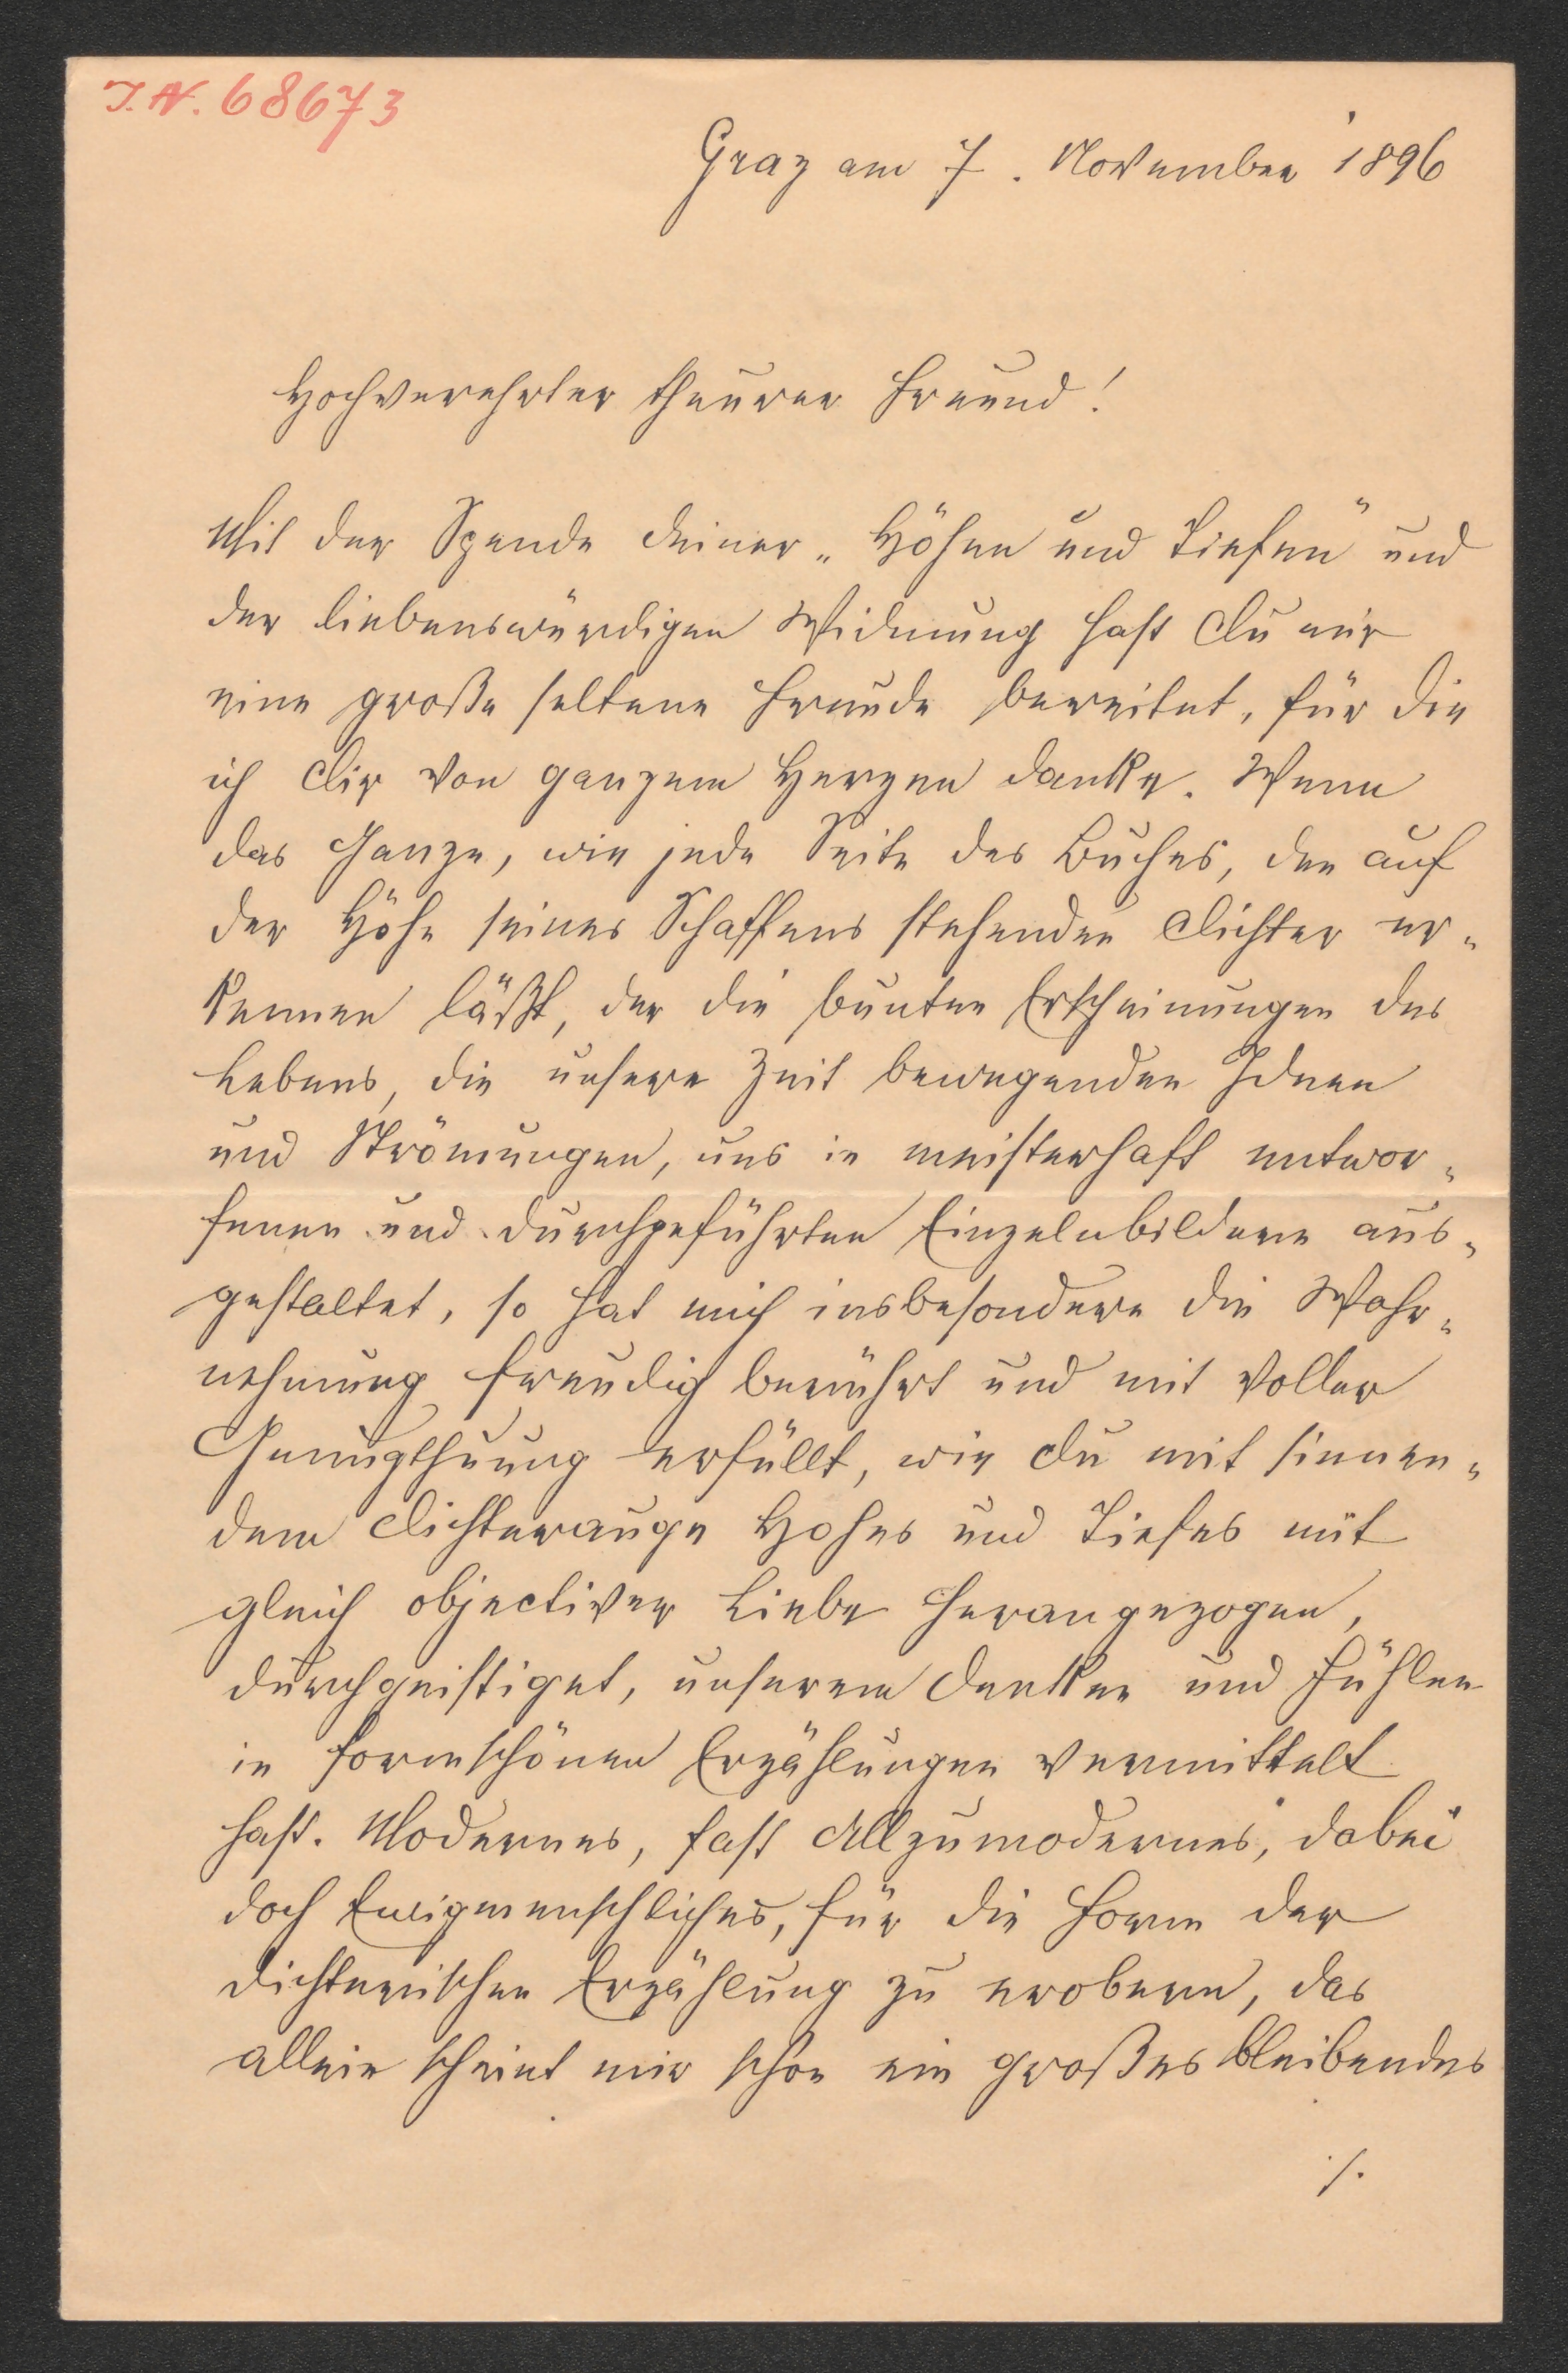 I.N. 68673
Graz am 7. November 1896
Hochverehrter theurer Freund!
Mit der Spende Deiner „Höhen und Tiefen" und
der liebenswürdigen Widmung hast Du mir
eine große seltene Freude bereitet, für die
ich Dir von ganzem Herzen danke. Wenn
das Ganze, wie jede Seite des Buches, den auf
der Höhe seines Schaffens stehenden Dichter er„
kennen läßt, der die bunten Erscheinungen des
Lebens, die unsere Zeit bewegenden Ideen
und Strömungen, uns in meisterhaft entwor„
fenen und durchgeführten Einzelnbildern aus„
gestaltet, so hat mich insbesondere die Wahr„
nehmung freudig berührt und mit voller
Genugthuung erfüllt, wie Du mit sinnen„
dem Dichterauge Hohes und Tiefes mit
gleich objectiver Liebe herangezogen,
durchgeistiget, unserem Denken und Fühlen
in formschönen Erzählungen vermittelt
hast. Modernes, fast Allzumodernes, dabei
doch Ewigmenschliches, für die Form der
dichterischen Erzählung zu erobern, das
allein scheint mir schon ein großes bleibendes
./.